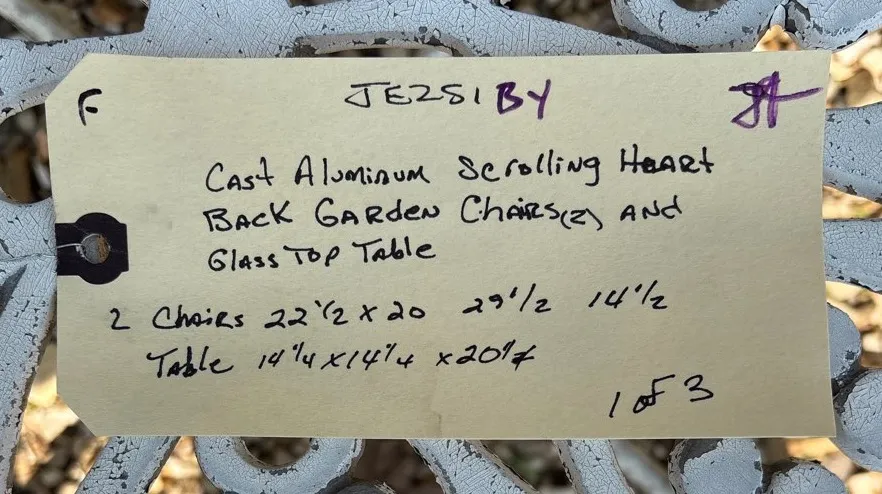 F
JE2S1 BY
CAST Aluminum Scrolling HEART
BACK GARDEN CHAIRS (2) AND
GLASS TOP Table
2 Chairs 22 1/2 X 20 29 1/2 14 1/2
Table 14 1/4 X 14 1/4 X 20
1 of 3